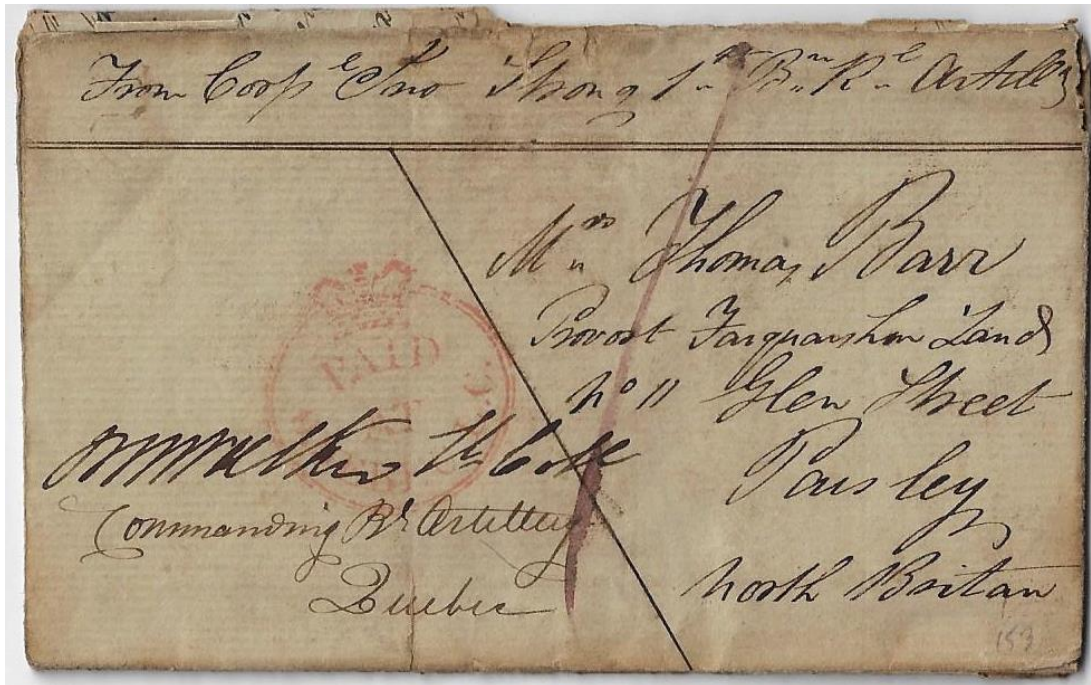 From Corpl Jno Strong 1st Bn Rl Artilly
Mrs Thomas Barr
Provost Farquarshon Land
No 11 Glen Street
Paisley
North Britan
PAID
Lt Coll
Commanding Rl Artillery
Quebec
1
153